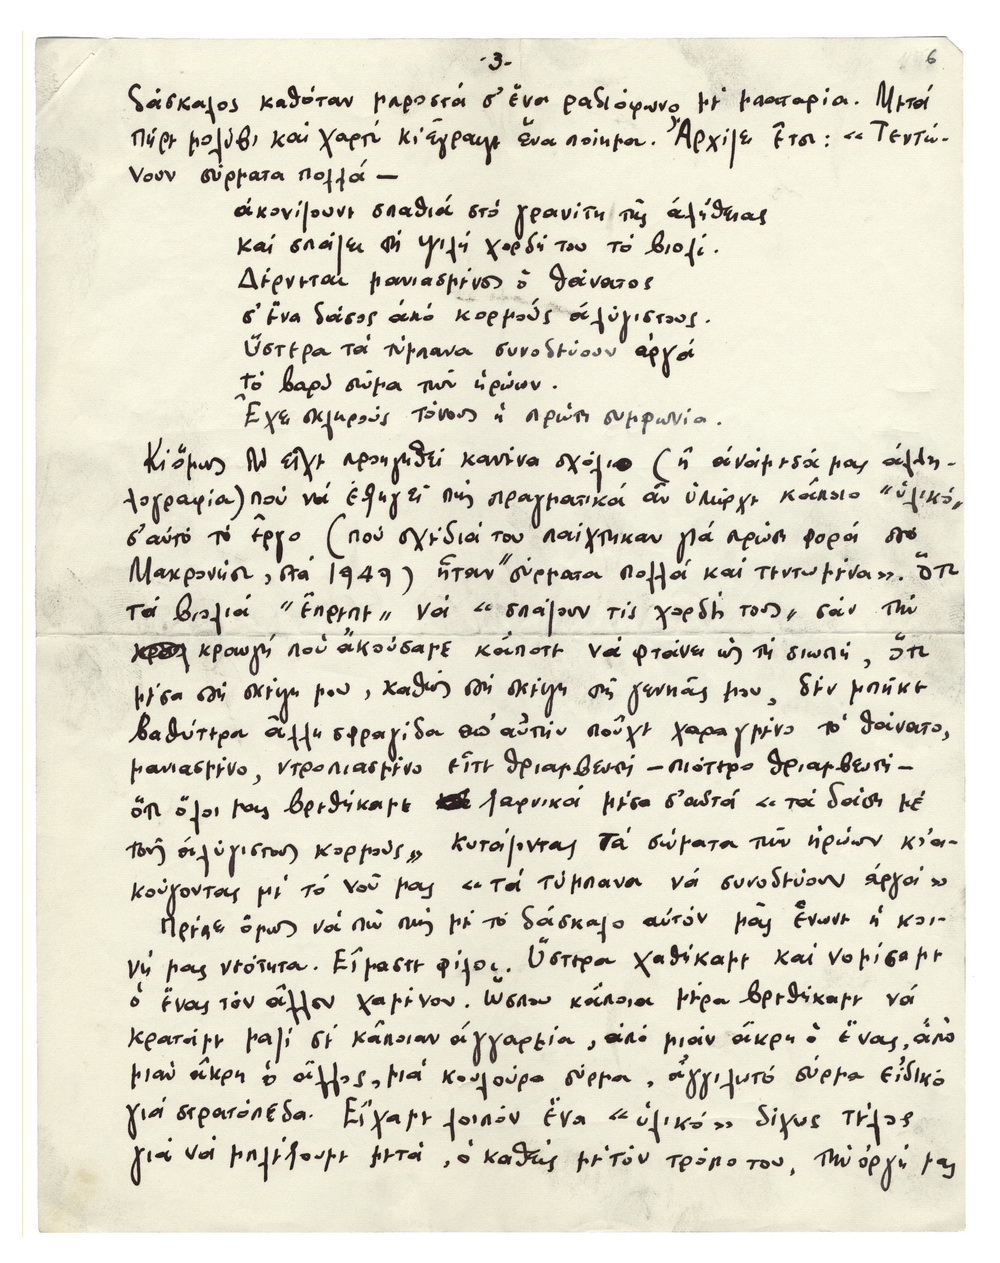 -3-
6
δάσκαλος καθόταν μπροστά σ' ἕνα ραδιόφωνο μέ μπαταρία. Μετά
πῆρε μολύβι καί χαρτί κι ἔγραψε ἕνα ποίημα. Ἄρχιζε ἔτσι: «Τεντώ-
νουν σύρματα πολλά —
ἀκονίζουνε σπαθιά στό γρανίτη τῆς ἀλήθειας
καί σπάζει τή ψιλή χορδή του τό βιολί.
Δέρνεται μανιασμένος ὁ θάνατος
σ' ἕνα δάσος ἀπό κορμούς ἀλύγιστους.
Ὕστερα τά τύμπανα συνοδεύουν ἀργά
τό βαρύ σῶμα τῶν ἡρώων.
Ἔχει σκληρούς τόνους ἡ πρώτη συμφωνία.
Κι ὅμως δέ εἶχε προηγηθεῖ κανένα σχόλιο (ἤ ἀνάμεσά μας ἀλλη-
λογραφία) πού νά ἐξηγεῖ πώς πραγματικά ἄν ὑπῆρχε κάποιο "ὑλικό"
σ' αὐτό τό ἔργο (πού σχέδιά του παίχτηκαν γιά πρώτη φορά στό
Μακρονήσι, στά 1949) ἦταν "σύρματα πολλά καί τεντωμένα». Ὅτι
τά βιολιά "ἔπρεπε" νά «σπάζουν τίς χορδές τους" σάν τήν
κραυγή πού ἀκούσαμε κάποτε νά φτάνει ὡς τή σιωπή, ὅτι
μέσα στή σκέψη μου, καθώς στή σκέψη τῆς γενηᾶς μου, δέν μπῆκε
βαθύτερα ἄλλη σφραγίδα ἀπ' αὐτήν πούχε χαραγμένο τό θάνατο,
μανιασμένο, ντροπιασμένο εἴτε θριαμβευτή — πιότερο θριαμβευτή —
ὅτι ὅλοι μας βρεθήκαμε ξαφνικά μέσα σ' αὐτά «τά δάση μέ
τούς ἀλύγιστους κορμούς» κυτάζοντας τά σώματα τῶν ἡρώων κι ἀ-
κούγοντας μέ τό νοῦ μας «τά τύμπανα νά συνοδεύουν ἀργά»
Πρέπει ὅμως νά πῶ πώς μέ τό δάσκαλο αὐτόν μᾶς ἕνωνε ἡ κοι-
νή μας νεότητα. Εἴμαστε φίλοι. Ὕστερα χαθήκαμε καί νομίσαμε
ὁ ἕνας τόν ἄλλον χαμένον. Ὥσπου κάποια μέρα βρεθήκαμε νά
κρατᾶμε μαζί σέ κάποιαν ἀγγαρεία, ἀπό μιάν ἄκρη ὁ ἕνας, ἀπό
μιάν ἄκρη ὁ ἄλλος, μιά κουλούρα σύρμα, ἀγγιλωτό σύρμα εἰδικό
γιά στρατόπεδα. Εἴχαμε λοιπόν ἕνα «ὑλικό» δίχως τέλος
γιά νά μπλέξουμε μετά, ὁ καθείς μέ τόν τρόπο του, τήν ὀργή μας